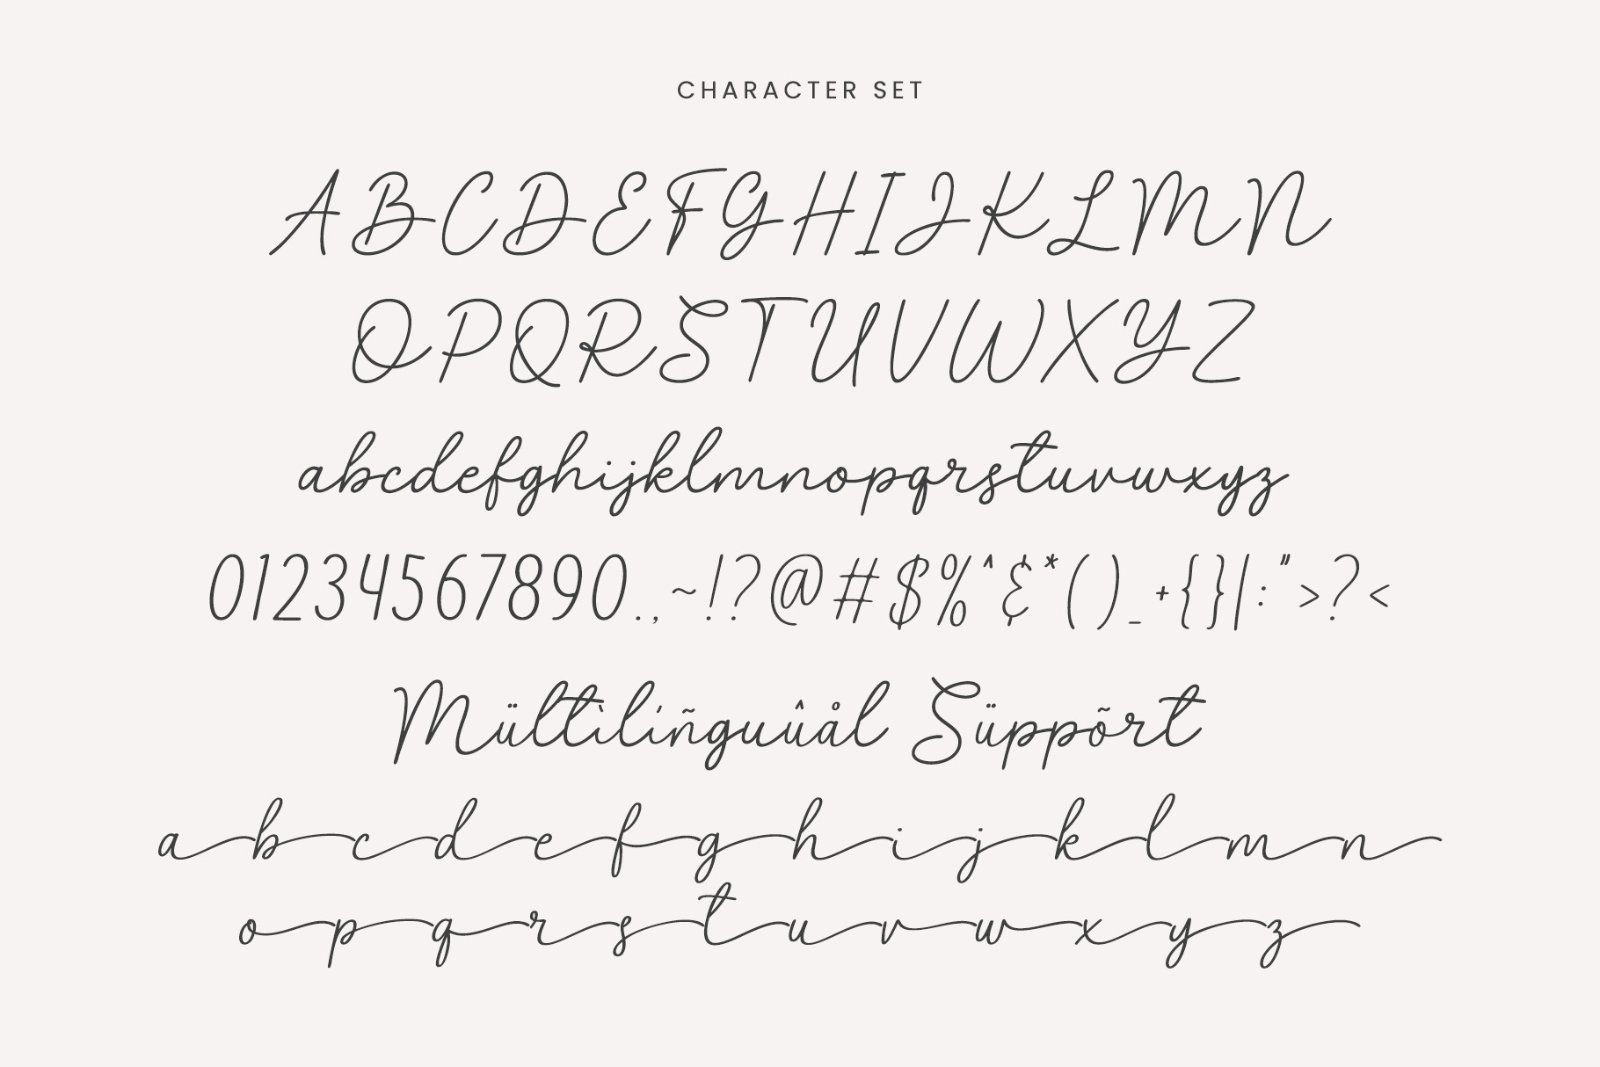 CHARACTER SET
ABCDEFGHIJKLMN
OPQRSTUVWXYZ
abcdefghijklmnopqrstuvwxyz
01234567890.,~!?@#$%^&*()_+{}|:">?<
Mültìlíñguûål Süppõrt
abcdefghijklmn
opqrstuvwxyz